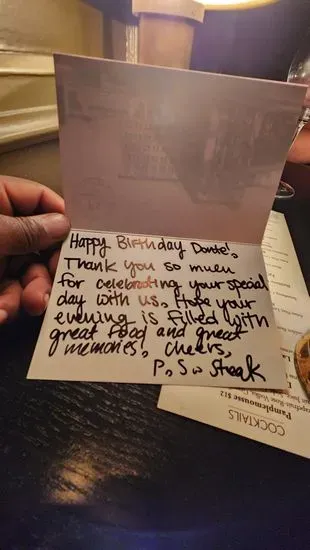 Happy Birthday Donte!,
Thank you so much
for celebrating your special
day with us. Hope your
evening is filled with
great food and great
memories. Cheers,
P.S. Steak
COCKTAILS
Pamplemousse $12